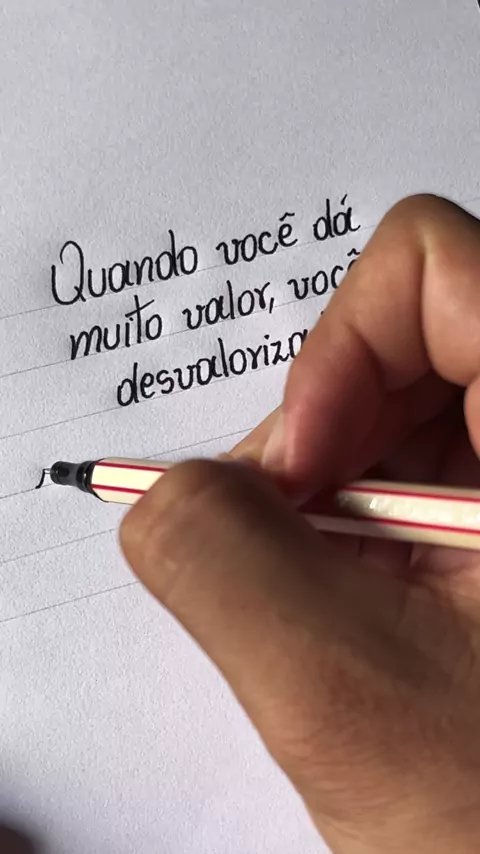 Quando você dá
muito valor, você
desvaloriza